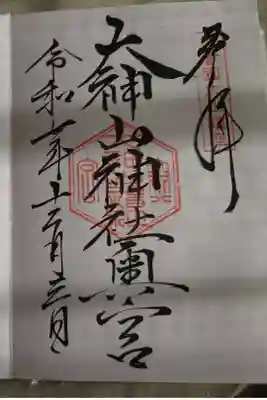 奉拝
大神山神社奥宮
令和一年十二月三日